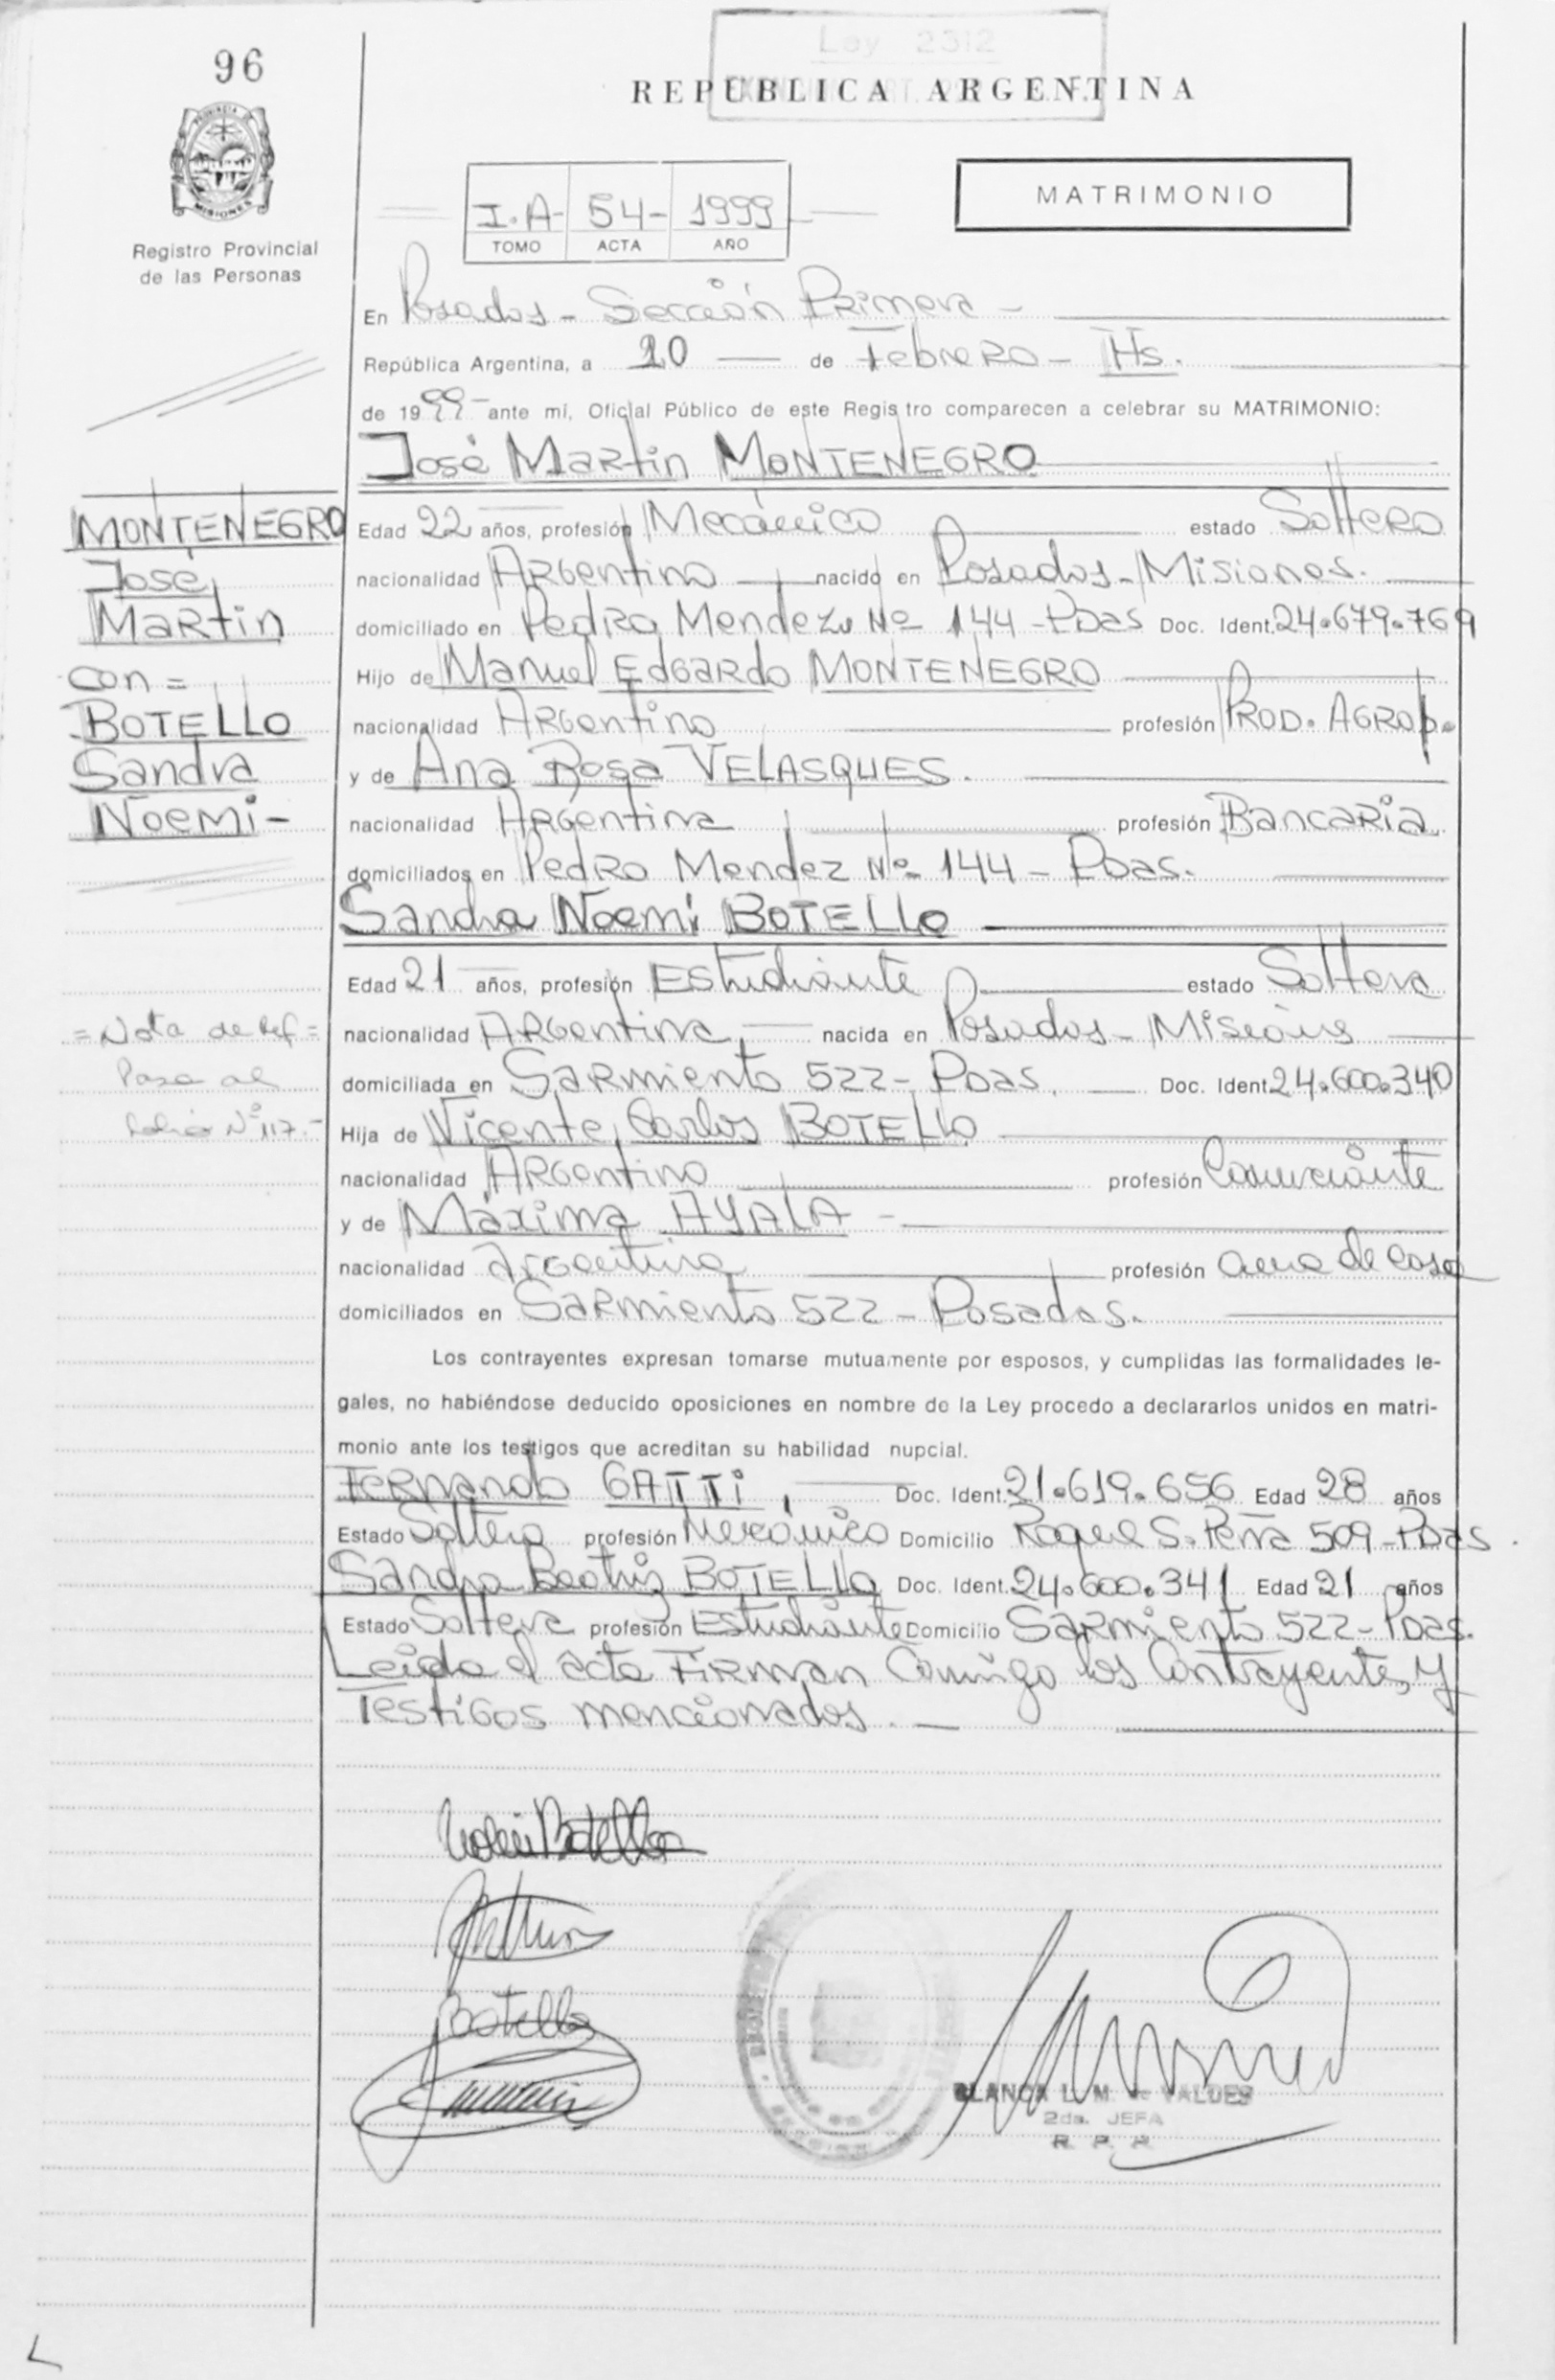 96
Ley 2312
REPUBLICA ARGENTINA
MATRIMONIO
I.A- 54- 1999
TOMO ACTA AÑO
PROVINCIA DE
MISIONES
Registro Provincial
de las Personas
En Posadas - Sección Primera -
República Argentina, a 10 de Febrero - Hs.
de 1999- ante mí, Oficial Público de este Registro comparecen a celebrar su MATRIMONIO:
José Martin MONTENEGRO
MONTENEGRO
José
Martin
con =
BOTELLO
Sandra
Noemi-
Edad 22 años, profesión Mecánico estado Soltero
nacionalidad Argentino nacido en Posadas - Misiones.
domiciliado en Pedro Mendez Nº 144 - Pdas Doc. Ident. 24.679.769
Hijo de Manuel Edgardo MONTENEGRO
nacionalidad Argentino profesión Prod. Agrop.
y de Ana Rosa VELASQUES.
nacionalidad Argentina profesión Bancaria
domiciliados en Pedro Mendez Nº 144 - Pdas.
Sandra Noemi BOTELLO
Edad 21 años, profesión Estudiante estado Soltera
nacionalidad Argentina nacida en Posadas - Misiones
domiciliada en Sarmiento 522 - Pdas. Doc. Ident. 24.600.340
Hija de Vicente Carlos BOTELLO
nacionalidad Argentino profesión Comerciante
y de Máxima AYALA -
nacionalidad Argentina profesión ama de casa
domiciliados en Sarmiento 522 - Posadas.
= Nota de Ref =
Pasa al
folio Nº 117.-
Los contrayentes expresan tomarse mutuamente por esposos, y cumplidas las formalidades le-
gales, no habiéndose deducido oposiciones en nombre de la Ley procedo a declararlos unidos en matri-
monio ante los testigos que acreditan su habilidad nupcial.
Fernando GATTI, Doc. Ident. 21.619.656 Edad 28 años
Estado Soltero profesión Mecánico Domicilio Roque S. Peña 509 - Pdas.
Sandra Beatriz BOTELLO Doc. Ident. 24.600.341 Edad 21 años
Estado Soltera profesión Estudiante Domicilio Sarmiento 522 - Pdas.
Leida el acta Firman Conmigo los Contrayentes y
Testigos mencionados. -
Noemi Botello
Botello
BLANCA L. M. de VALDES
2da. JEFA
R. P. P.